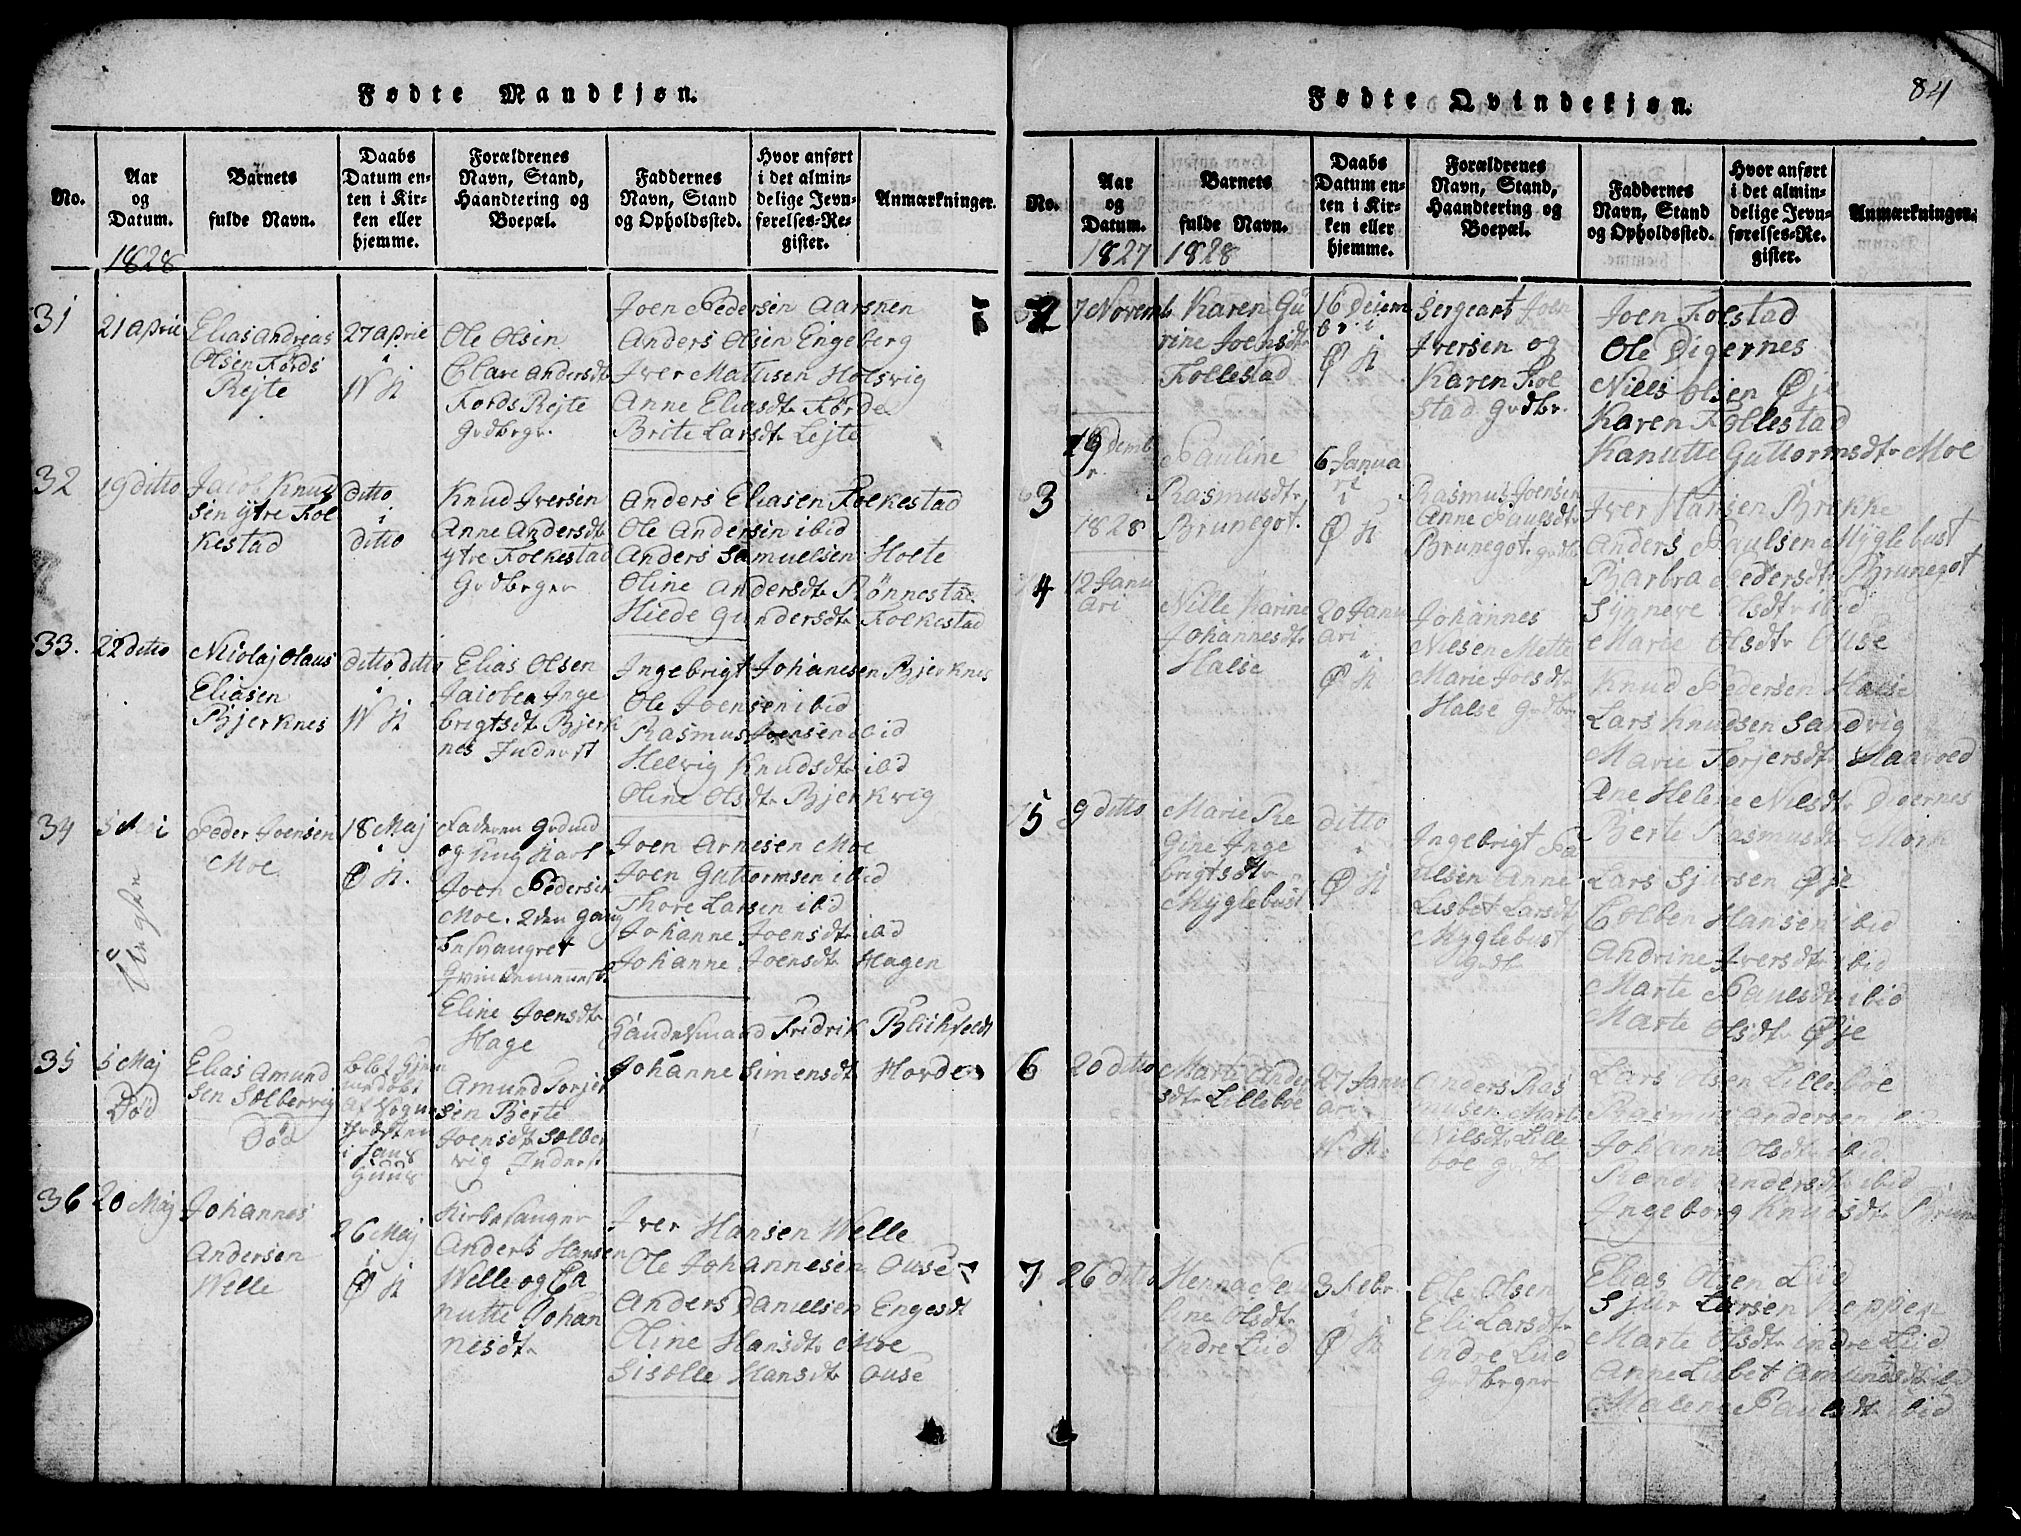 Fødte Mandkjøn.
No.
Aar
og
Datum.
1828
Barnets
fulde Navn.
Daabs
Datum en-
ten i Kir-
ken eller
hjemme.
Forældrenes
Navn, Stand,
Haandtering og
Boepæl.
Faddernes
Navn, Stand
og Opholdssted.
Hvor anført
i det almin-
delige Jevn-
førelses-Re-
gister.
Anmærkninger.
31
21 Aprie
Elias Andreas
Olsen Førds
Rejte
27 Aprie
i
N K
Ole Olsen
Andersdtr
Fords Rejte
Grdbrgr.
Joen Pedersen Aarsnen
Anders Olsen Engeberg
Iver Mattisen Holsvig
Anne Eliasdtr Førde
Brite Larsdtr Lejte
32
19 ditto
Jacob Knud
sen ytre Fol
kestad
ditto
i
ditto
Knud Iversen
Anne Andersdtr
ytre Folkestad
Grdbrger
Anders Eliasen Folkestad
Ole Andersen ibid
Anders Samuelsen Holte
Oline Andersdtr Rønnestad
Hiede Gundersdtr Folkestad
33.
22 ditto
Nicolaj Olaus
Eliasen
Bjerknes
ditto ditto
i
N K
Elias Olsen
Jacobea Inge
brigtsdtr Bjerk
nes Inderst
Ingebrigt Johanesen Bjerknes
Ole Joensen ibid
Rasmus Joensen ibid
Helvig Knudsdtr ibd
Oline Olsdtr Bjerkvig
34
5 Mai
Uægte
Peder Joensen
Moe
18 Maj
i
Ø K.
Faderen Grdmd
og ung Karl
Joen Pedersen
Moe. 2den Gang
besvangret
Qvindemennesk
Eline Joensdtr
Hage
Joen Arnesen Moe
Joen Guttormsen ibid
Thore Larsen ibid
Johanne Joensdtr ibd
Johanne Joensdtr Hagen
35
5 Maj
Død
Elias Amund
sen Solbervig
Død
i
Amund Torjer
sen Berte
Joensdtr Solber
vig Inderst
Fridrik Blichfeldt
Johanne Simensdtr Horde
36
20 Maj
Johannes
Andersen
Welle
26 Maj
i
Ø K
Kirkesanger
Anders Hansen
Welle og Ca
nutte Johan
nesdtr
Iver Hansen Welle
Ole Johannesen Ouse
Anders Danielsen Engesdt
Oline Hansdtr Moe
Siselle Hansdtr Ouse
84
Fødte Qvindekjøn.
No.
Aar
og
Datum.
1827
Barnets
fulde Navn.
1828
Daabs
Datum en-
ten i Kir-
ken eller
hjemme.
Forældrenes
Navn, Stand,
Haandtering og
Boepæl.
Faddernes
Navn, Stand
og Opholdssted.
Hvor anført
i det almin-
delige Jevn-
førelses-Re-
gister.
Anmærkninger.
2
7 Novemb
Karen Gu
rine Joensdtr
Follestad
16 Decem
br i
Ø K
Sergeant Joen
Iversen og
Karen Fol
stad Grdbr.
Joen Folstad
Ole Digernes
Nills Olsen Øje
Karen Follestad
Kanutte Guttormsdtr Moe
3
19 Demb
r
1828
Pauline
Rasmusdtr
Brunegot.
6 Janua
ri
i
Ø K
Rasmus Joensen
Anne Paulsdtr
Brunegot Grdbr
Iver Hansen Brekke
Anders Paulsen Myglebust
Barbra Pedersdtr Brunegot
Synneve Olsdtr ibid
Marie Olsdtr Ouse
4
12 Janu
ari
Nille Karine
Johannesdtr
Halse
20 Janu
ari
i
Ø K
Johannes
Nilsen Mette
Marie Joelsdtr
Halse Grdbr
Knud Pedersen Halse
Lars Knudsen Sandvig
Marie Torjersdtr Haavoed
Ane Helene Nilsdtr Digernes
Berte Rasmusdtr Mork
5
9 ditto
Marie Re
gine Inge
brigtsdtr
Myglebust
ditto
i
Ø K
Ingebrigt Pa
ulsen Anne
Lisbet Larsdtr
Myglebust
Grdbr
Lars Sjursen Øje
Colben Hansen ibid
Andrine Iversdtr ibid
Marte Paulsdtr ibid
Marte Olsdtr Øje
6
20 ditto
Marte Ander
sdtr Lilleboe
27 Janu
ari
N K.
Anders Ras
musen Marte
Nilsdtr Lille
boe Grdb
Lars Olsen Lilleboe
Rasmus Andersen ibid
Johanne Olsdtr ibid
Rende Andersdtr ibid
Ingeborg Knudsdtr Brune
7
26 ditto
line Olsdtr
indre Lid
3 Febr.
i
Ø K
Ole Olsen
Eli Larsdtr
indre Lid
Grdbrger
Elias Olsen Lid
Sjur Larsen Neppen
Marte Olsdtr indre Lid
Anne Lisbet Amundsdtr ibid
Malene Paulsdtr ibid